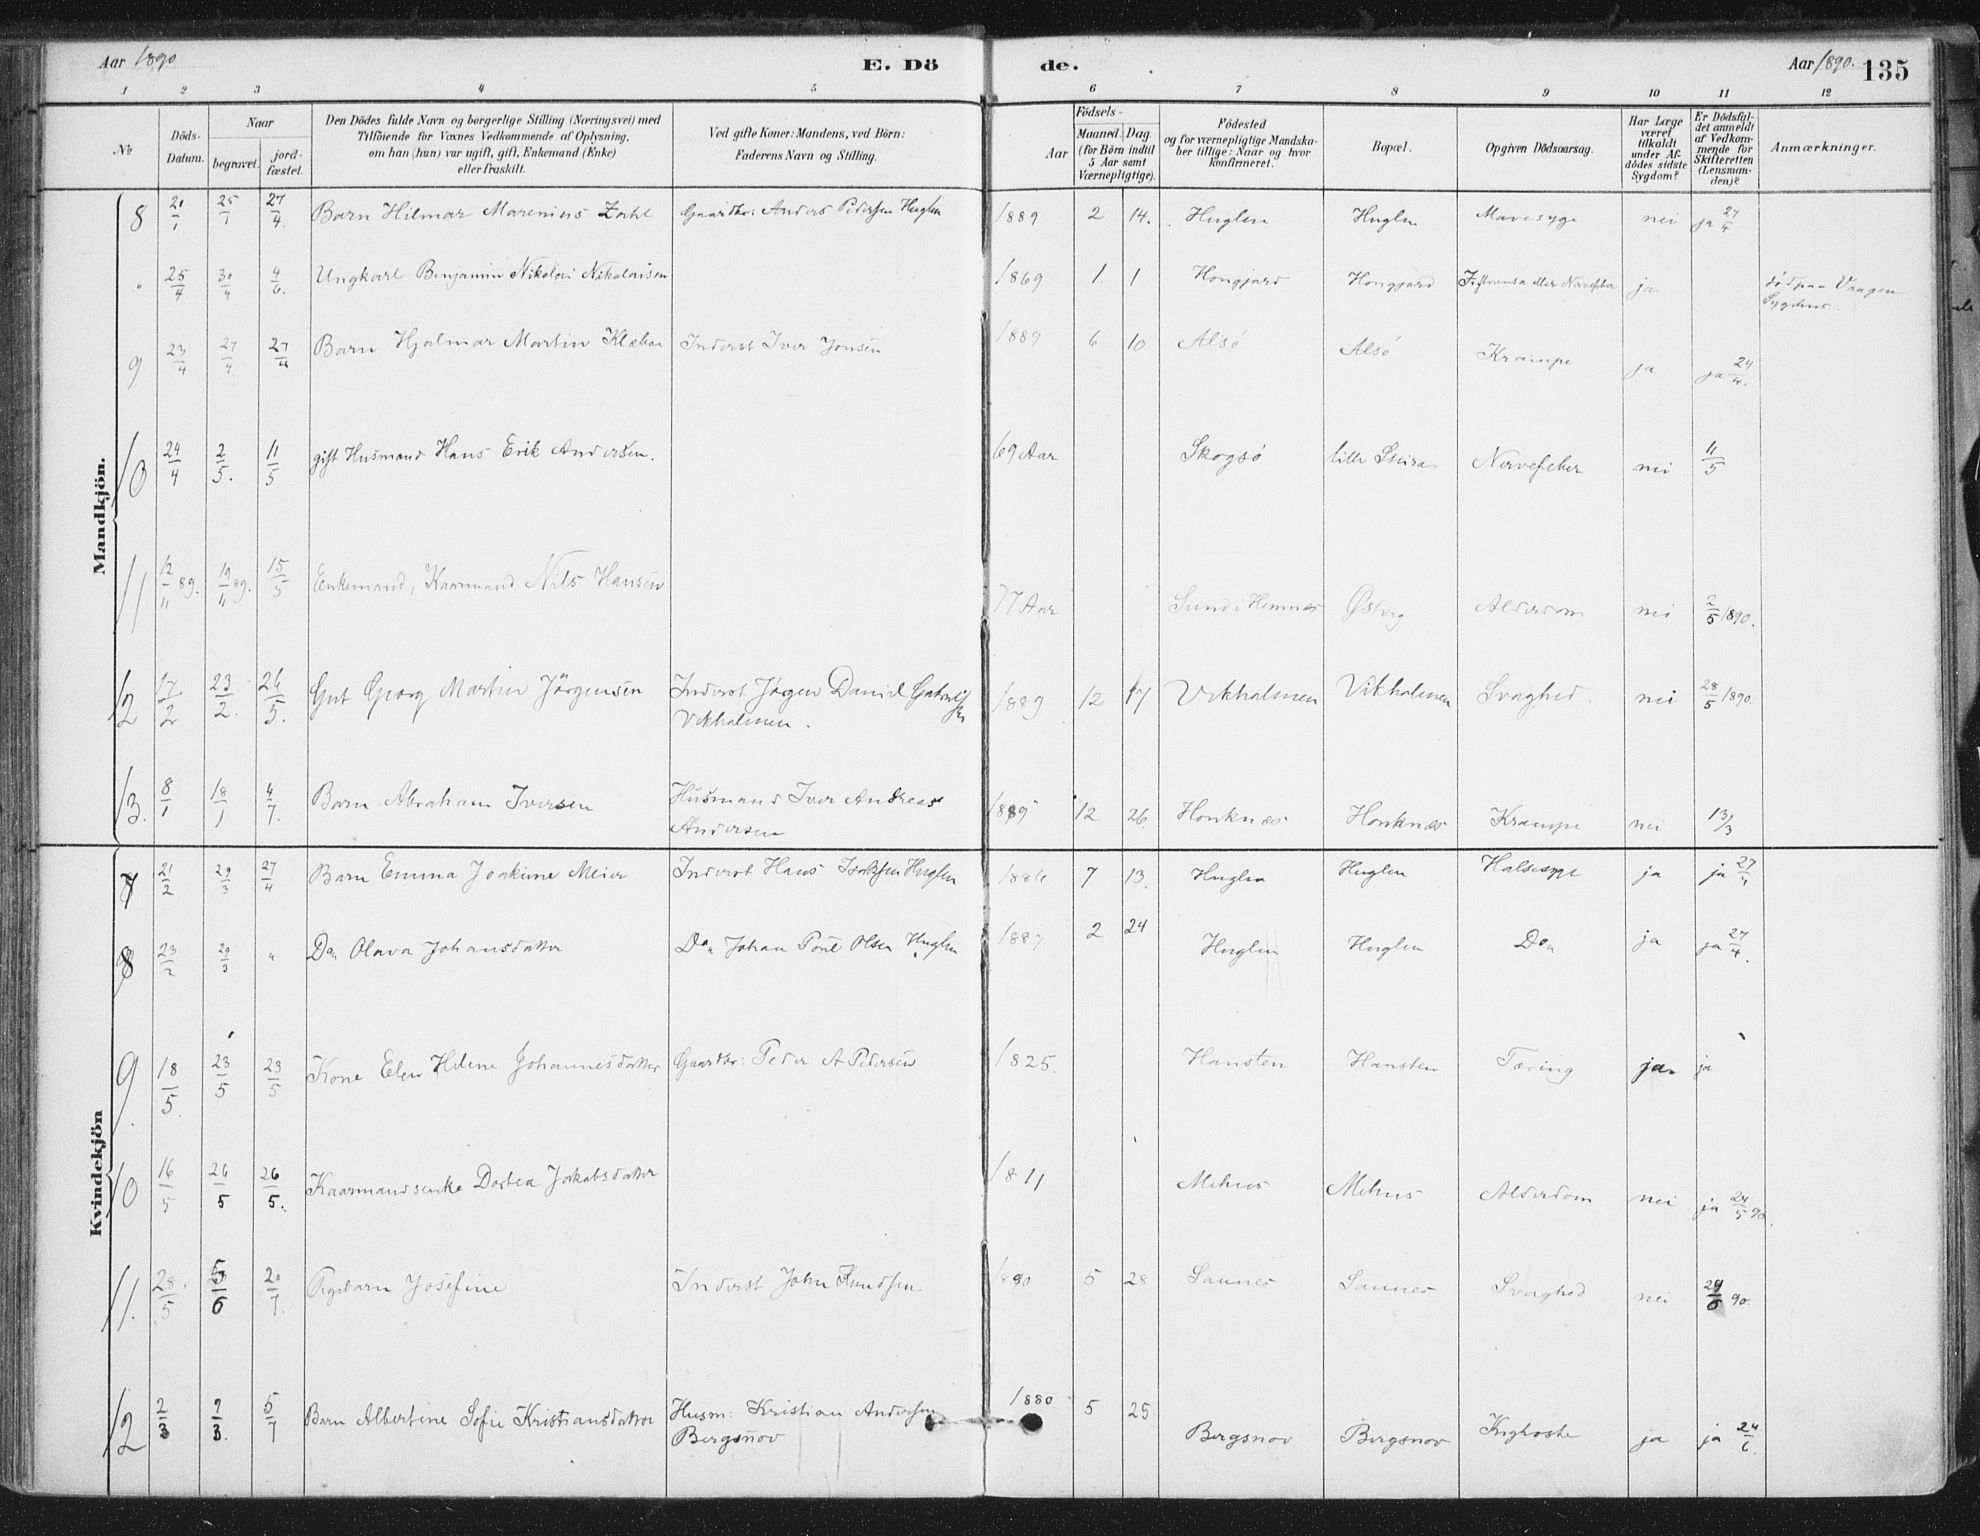 Aar 1890
E. Dö
de.
Aar 1890. 135
1 2 3 4 5 6 7 8 9 10 11 12
No
Döds-Datum.
Naar
begravet.
jord-fæstet.
Den Dödes fulde Navn og borgerlige Stilling (Næringsvei) med
Tilföiende for Voxnes Vedkommende af Oplysning,
om han (hun) var ugift, gift, Enkemand (Enke)
eller fraskilt.
Ved gifte Koner: Mandens, ved Börn:
Faderens Navn og Stilling.
Födsels-
Aar
Maaned. Dag.
(for Börn indtil
5 Aar samt
Værnepligtige).
Födested
og for værnepligtige Mandska-
ber tillige: Naar og hvor
konfirmeret.
Bopæl.
Opgiven Dödsaarsag.
Har Læge
været
tilkaldt
under Af-
dödes sidste
Sygdom?
Er Dödsfal-
det anmeldt
af Vedkom-
mende for
Skifteretten
(Lensman-
den)?
Anmærkninger.
Mandkjön.
8 21/1 25/1 27/4. Barn Hilmar Marenius Zahl Gaardbr: Anders Pedersen Huglen 1889 2 14. Huglen Huglen Mavesyge nei ja 27/4
" 25/4 30/4 4/6. Ungkarl Benjamin Nikolai Nikolaisen 1869 1. 1 Hongjard Hongjard Influensa eller Nervefeber ja død paa Vaagen
Sygehus.
9 23/4 27/4. 27/4 Barn Hjalmar Martin Klæboe Inderst Iver Jonsen 1889 6 10 Alsö Alsö Krampe ja ja 24/4.
10 24/4 2/5. 11/5 gift Husmand Hans Erik Andersen. 69 Aar Skogsö lille Steira Nervefeber nei 11/5
11 12/11 89. 19/11 89. 15/5 Enkemand, Kaarmand Nils Hansen 77 Aar Sund i Hemnæs Østvig Alderdom nei 2/5 1890.
12 17/2 23/2. 26/5. Gut Georg Martin Jörgensen Inderst Jörgen Daniel
Vikholmen. 1889 12 17 Vikholmen Vikholmen Svaghed. nei 28/5 1890.
13. 8/1 18/1 4/7. Barn Abraham Iversen Husmand Iver Andreas
Andersen 1889 12 26. Honknæs Honknæs Krampe nei 13/3
Kvindekjön
7 21/2 29/3 27/4 Barn Emma Joakime Meier Inderst Hans Isaksen Huglen 1886 7 13. Huglen Huglen Halssyge ja ja 27/4
8 23/2 29/3 " Do Olava Johansdatter Do Johan Povl Olsen Huglen 1887 2 24 Huglen Huglen Do ja ja 27/4.
9. 18/5. 23/5 23/5 Kone Elen Helene Johannesdatter Gaardbr: Peder A Pedersen 1825. Hansten Hansten Tæring ja. ja
10 16/5 26/5 26/5. Kaarmandsenke Dortea Jakobsdatter 1811 Mehus Mehus Alderdom nei ja 24/5 90.
11. 28/5 5/6 20/7. Pigebarn Josefine Inderst John Knudsen 1890 5 28 Saunes Saunes Svaghed nei 90.
12 2/3 9/3. 5/7 Barn Albertine Sofie Kristiansdatter Husm: Kristian Andersen
Bergsnov 1880 5 25 Bergsnov Bergsnov Kighoste ja ja 24/6.